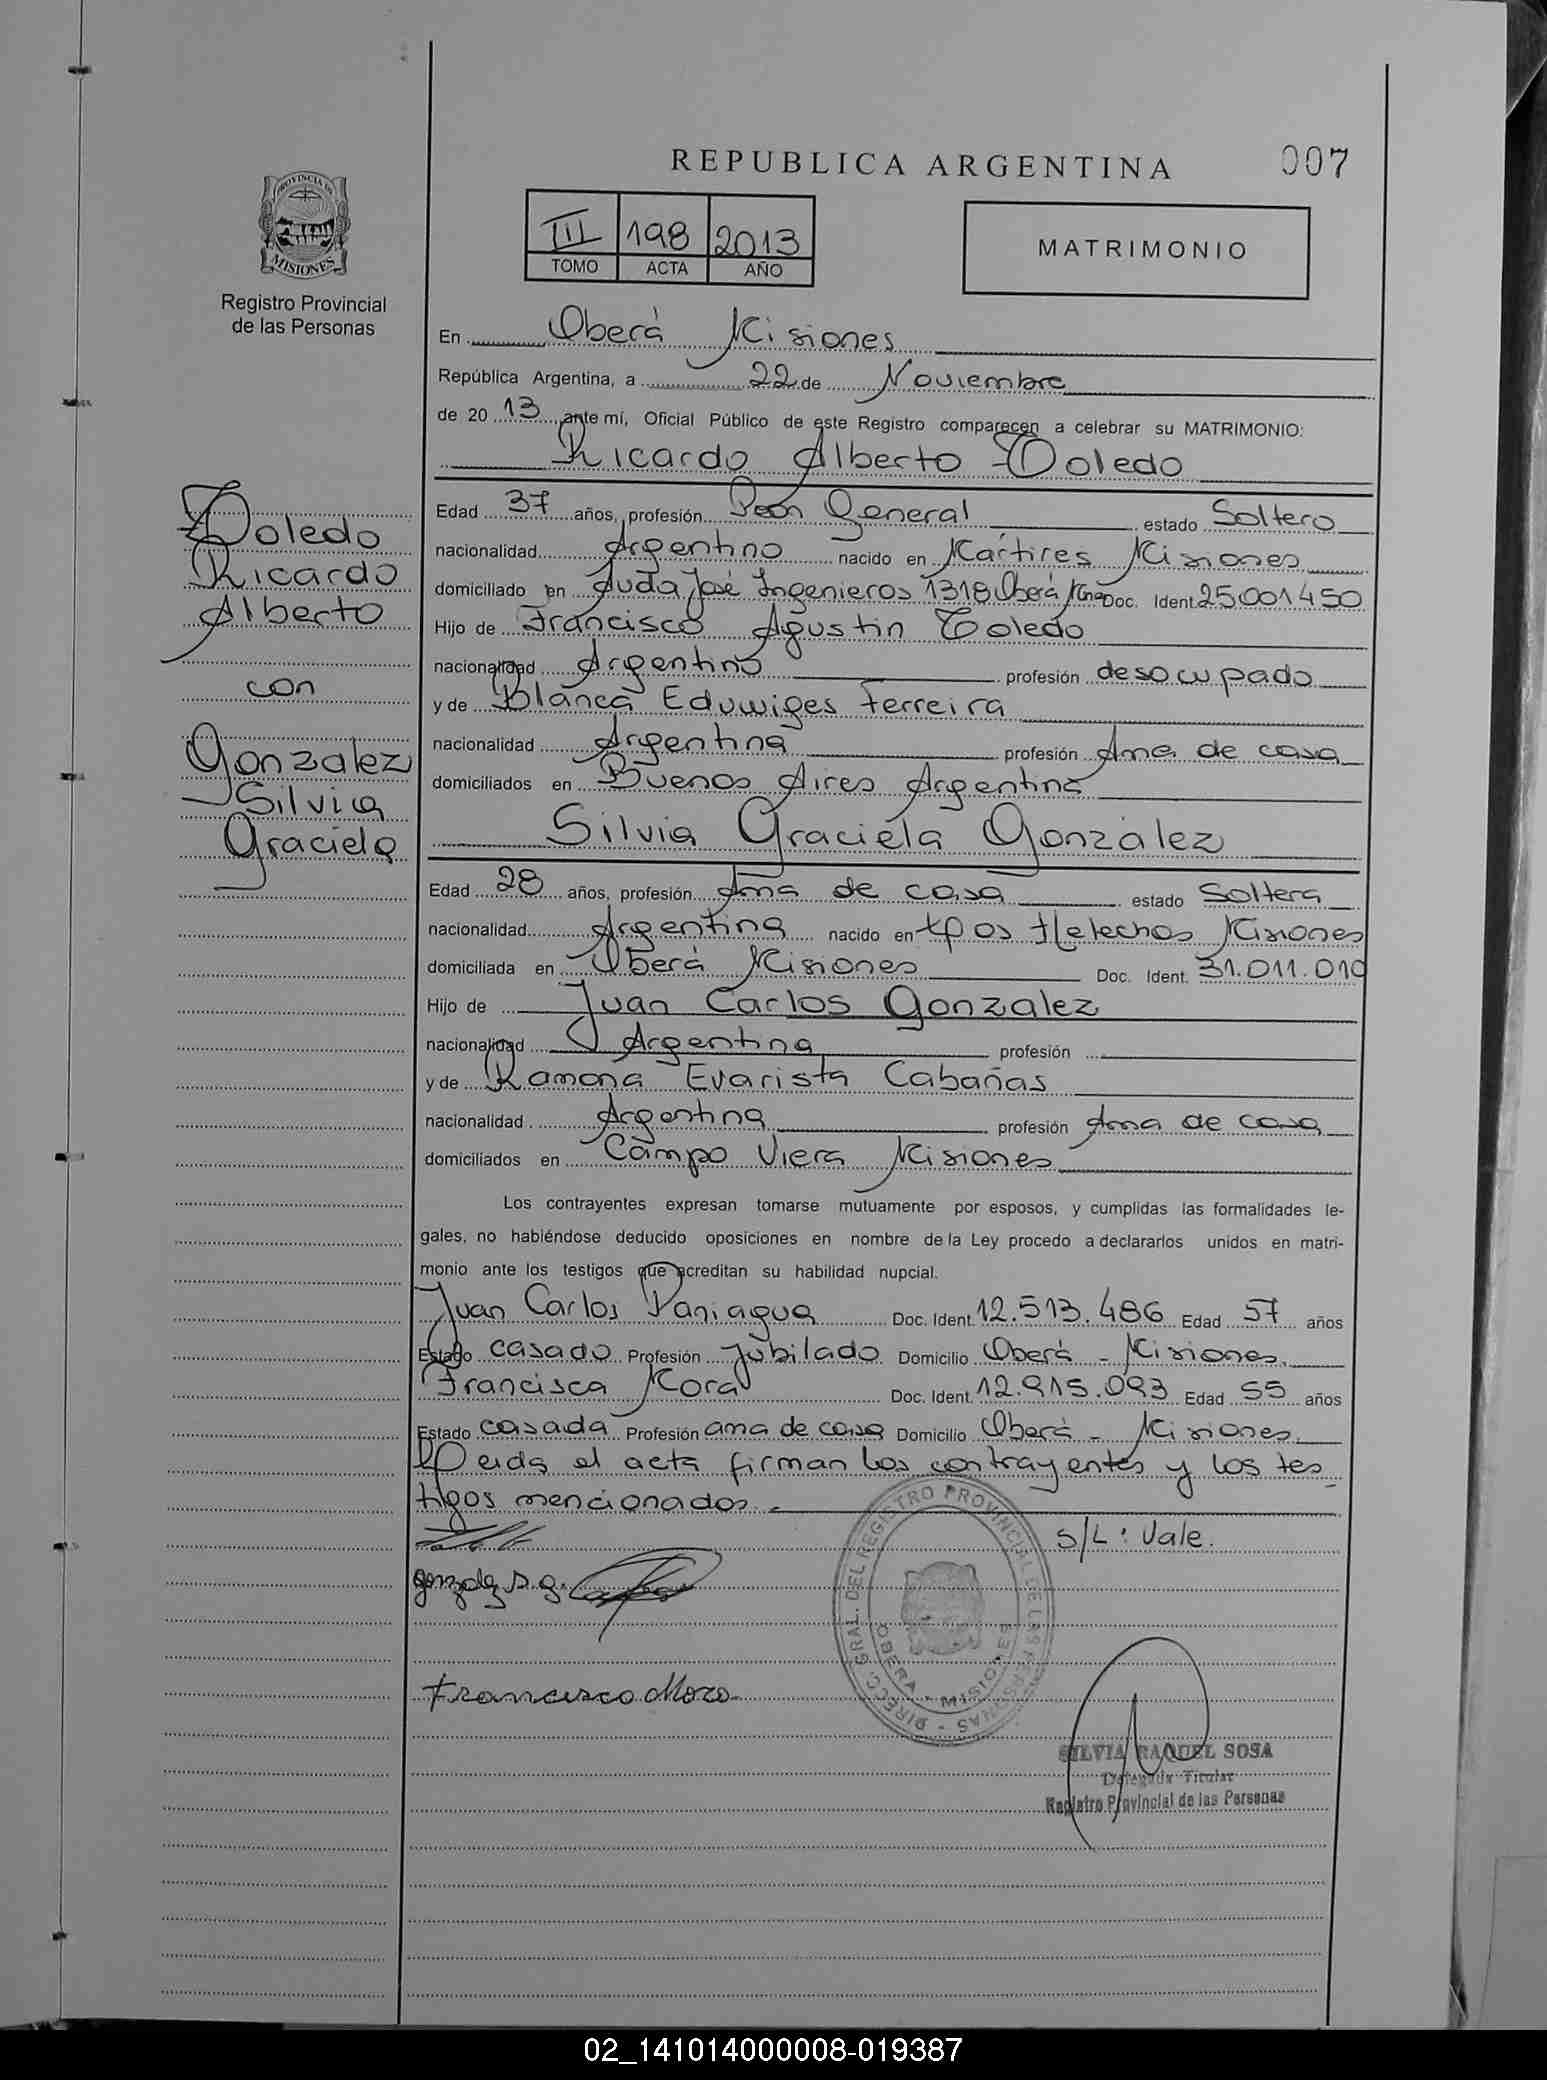 REPUBLICA ARGENTINA 007
PROVINCIA DE
MISIONES
Registro Provincial
de las Personas
III 198 2013
TOMO ACTA AÑO
MATRIMONIO
En Oberá Misiones
República Argentina, a 22 de Noviembre
de 20 13 ante mí, Oficial Público de este Registro comparecen a celebrar su MATRIMONIO:
Ricardo Alberto Toledo
Toledo
Ricardo
Alberto
con
Gonzalez
Silvia
Graciela
Edad 37 años, profesión Peón General estado Soltero
nacionalidad Argentino nacido en Mártires Misiones
domiciliado en Avda José Ingenieros 1318 Oberá Mnes Doc. Ident. 25.001.450
Hijo de Francisco Agustin Toledo
nacionalidad Argentino profesión desocupado
y de Blanca Eduwiges Ferreira
nacionalidad Argentina profesión Ama de casa
domiciliados en Buenos Aires Argentina
Silvia Graciela Gonzalez
Edad 28 años, profesión Ama de casa estado Soltera
nacionalidad Argentina nacido en Helechos Misiones
domiciliada en Oberá Misiones Doc. Ident. 31.011.010
Hijo de Juan Carlos Gonzalez
nacionalidad Argentina profesión
y de Ramona Evarista Cabañas
nacionalidad Argentina profesión Ama de casa
domiciliados en Campo Viera Misiones
Los contrayentes expresan tomarse mutuamente por esposos, y cumplidas las formalidades le-
gales, no habiéndose deducido oposiciones en nombre de la Ley procedo a declararlos unidos en matri-
monio ante los testigos que acreditan su habilidad nupcial.
Juan Carlos Paniagua Doc. Ident. 12.513.486 Edad 57 años
Estado casado Profesión Jubilado Domicilio Oberá - Misiones
Francisca Mora Doc. Ident. 12.915.093 Edad 55 años
Estado casada Profesión ama de casa Domicilio Oberá - Misiones
Leida el acta firman los contrayentes y los tes
tigos mencionados.-
S/L: Vale.
Gonzalez S.G.
Francisca Mora
DIRECC. GRAL. DEL REGISTRO PROVINCIAL DE LAS PERSONAS -
OBERA - MISIONES
SILVIA RAQUEL SOSA
Delegada Titular
Registro Provincial de las Personas
02_141014000008-019387